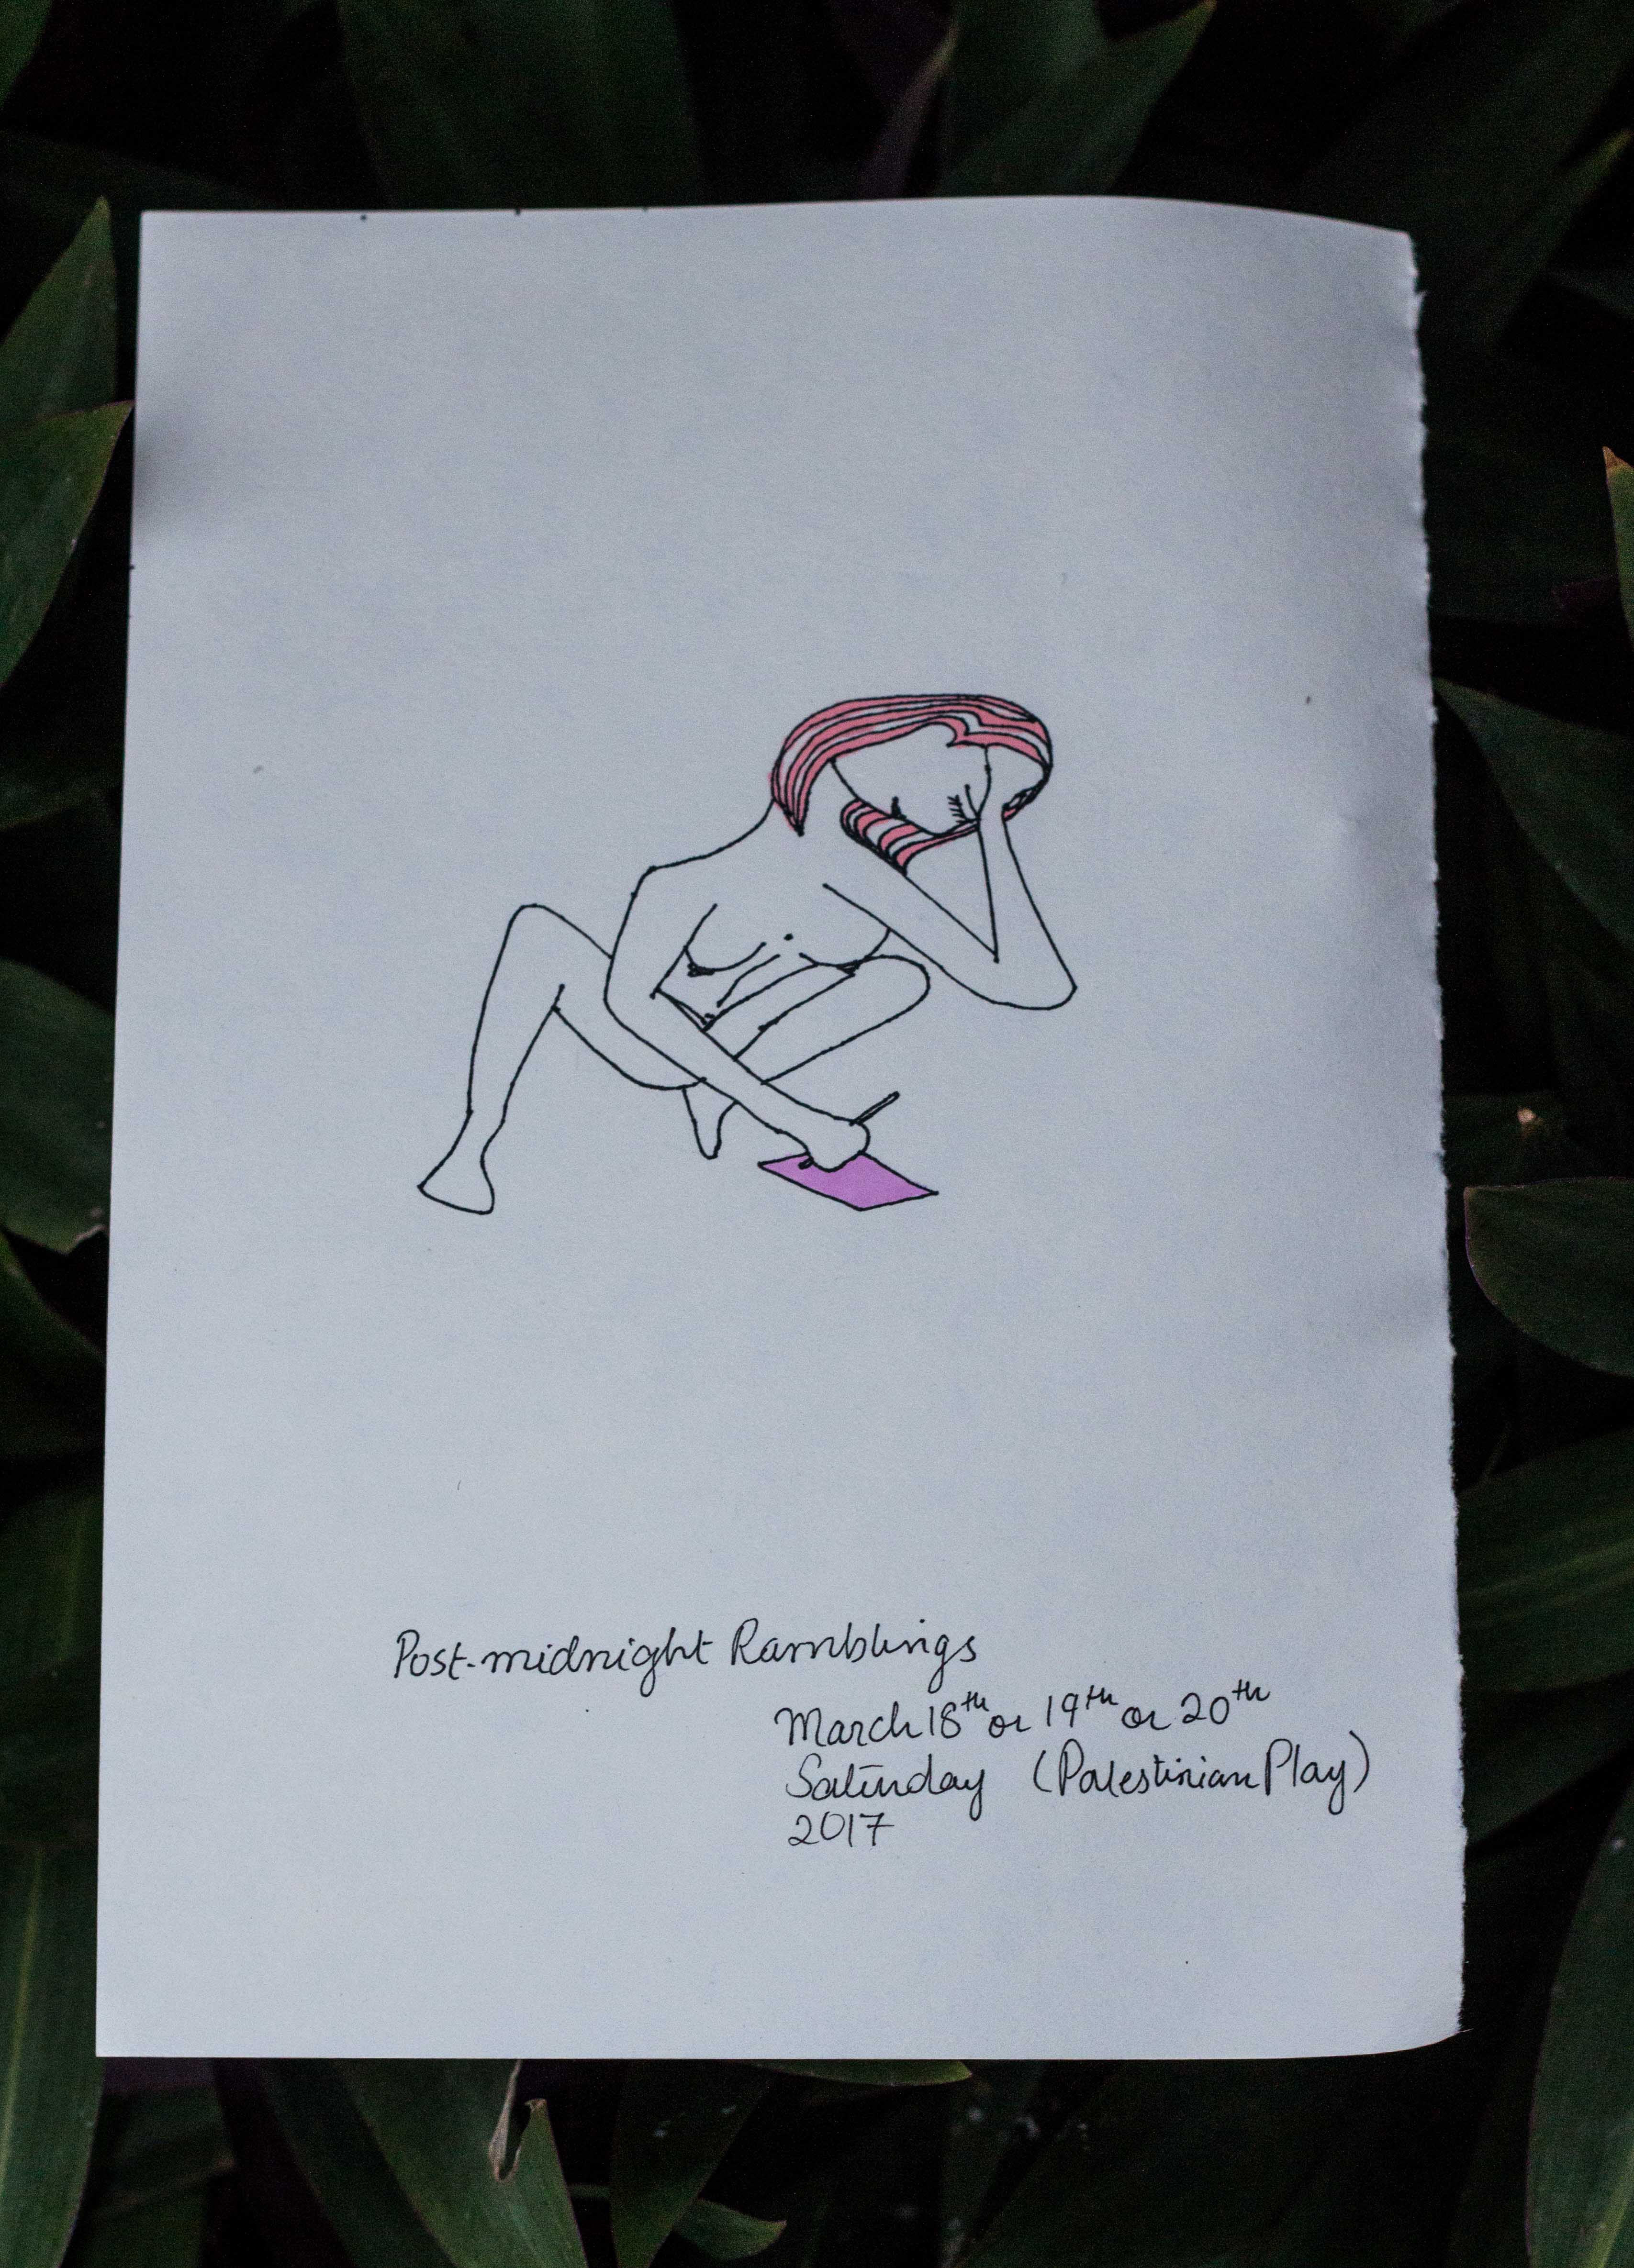 Post-midnight Ramblings
March 18th or 19th or 20th
Saturday (Palestinian Play)
2017